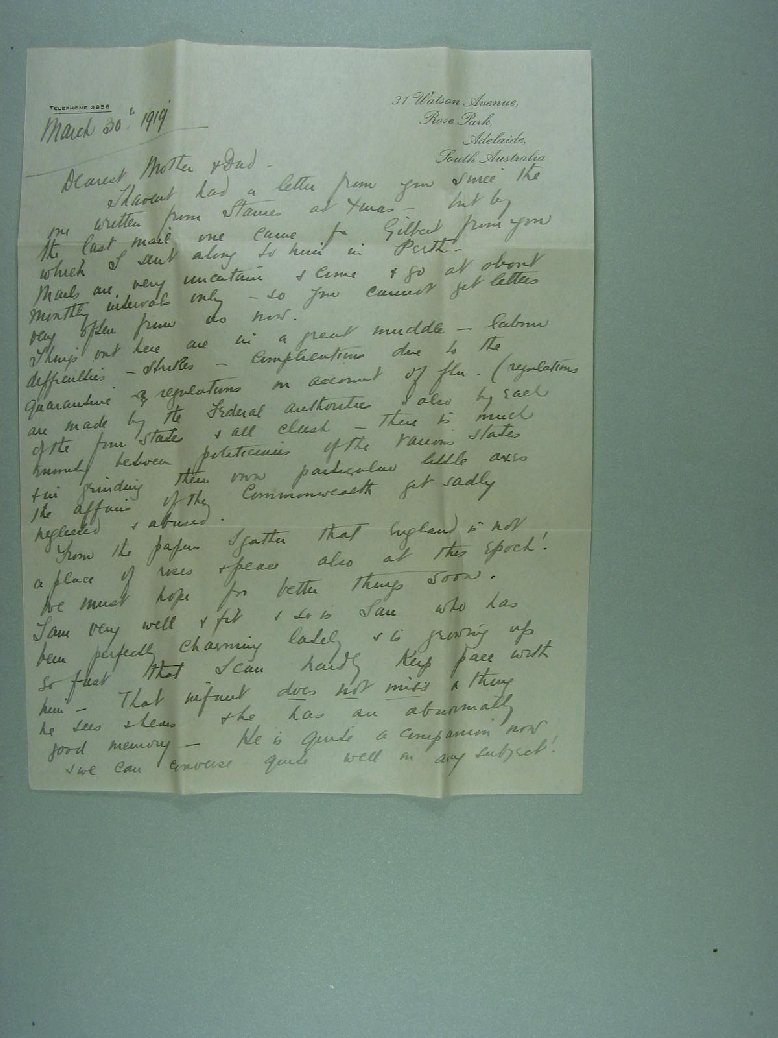 TELEPHONE
31 Watson Avenue,
Rose Park,
Adelaide,
South Australia
March 30th 1919
Dearest Mother & Dad -
I havent had a letter from you since the
one written from Staines at Xmas - but by
the last mail one came for Gilbert from you
which I sent along to him in Perth -
Mails are very uncertain & come & go at about
monthly intervals only - so you cannot get letters
very often from us now.
Things out here are in a great muddle - labour
difficulties - strikes - complications due to the
quarantine & regulations on account of flu. (regulations
are made by the Federal authorities & also by each
of the four States & all clash - there is much
between politicians of the various States
& in grinding their own particular little axes
the affairs of the Commonwealth get sadly
neglected & abused.
From the papers I gather that England is not
a place of roses & peace also at this Epoch!
We must hope for better things soon.
I am very well & fit & so is Ian who has
been perfectly charming lately & is growing up
so fast that I can hardly keep pace with
him - That infant does not miss a thing
he sees & hears & he has an abnormally
good memory - He is quite a companion now
& we can converse quite well on any subject!